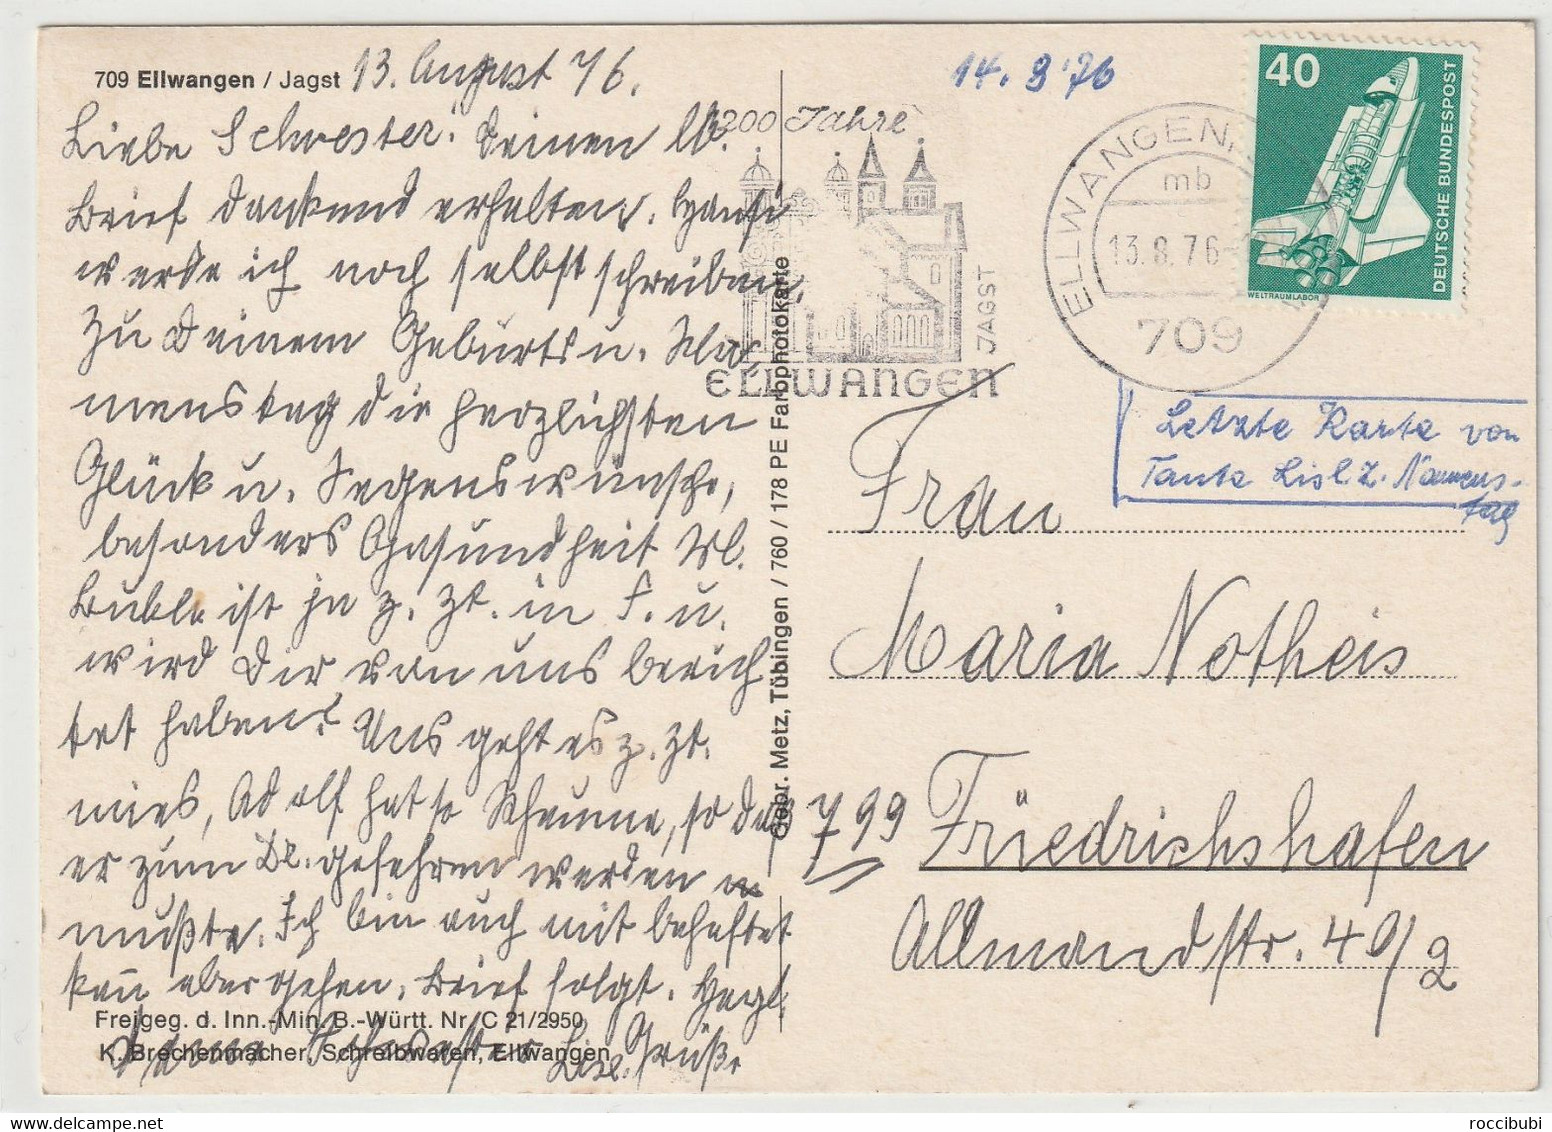 709 Ellwangen / Jagst 13. August 76.
Liebe Schwester! Deinen lb.
Brief dankend erhalten. Hansi
werde ich noch selbst schreiben.
Zu Deinem Geburts u. Na-
menstag die herzlichsten
Glück u. Segenswünsche,
besonders Gesundheit Wl.
ist ja z. Zt. in F. u.
wird Dir von uns berich
tet haben? Uns geht es z. Zt.
mies, Adolf hat so Rheuma, so daß
er zum Dr. gefahren werden
mußte. Ich bin auch mit behaftet
kann aber gehen. Brief folgt. Herzl.
deine Schwester Lisl. Grüße
Freigeg. d. Inn.-Min. B.-Württ. Nr. C 21/2950
K. Brechenmacher, Schreibwaren, Ellwangen
Gebr. Metz, Tübingen / 760 / 178 PE Farbphotokarte
14. 8 '76
1200 Jahre
ELLWANGEN
JAGST
ELLWANGEN,
mb
13.8.76
709
40
DEUTSCHE BUNDESPOST
WELTRAUMLABOR
Letzte Karte von
Tante Lisl z. Namens-
tag
Frau
Maria Notheis
799 Friedrichshafen
Allmandstr. 40/2
roccibubi